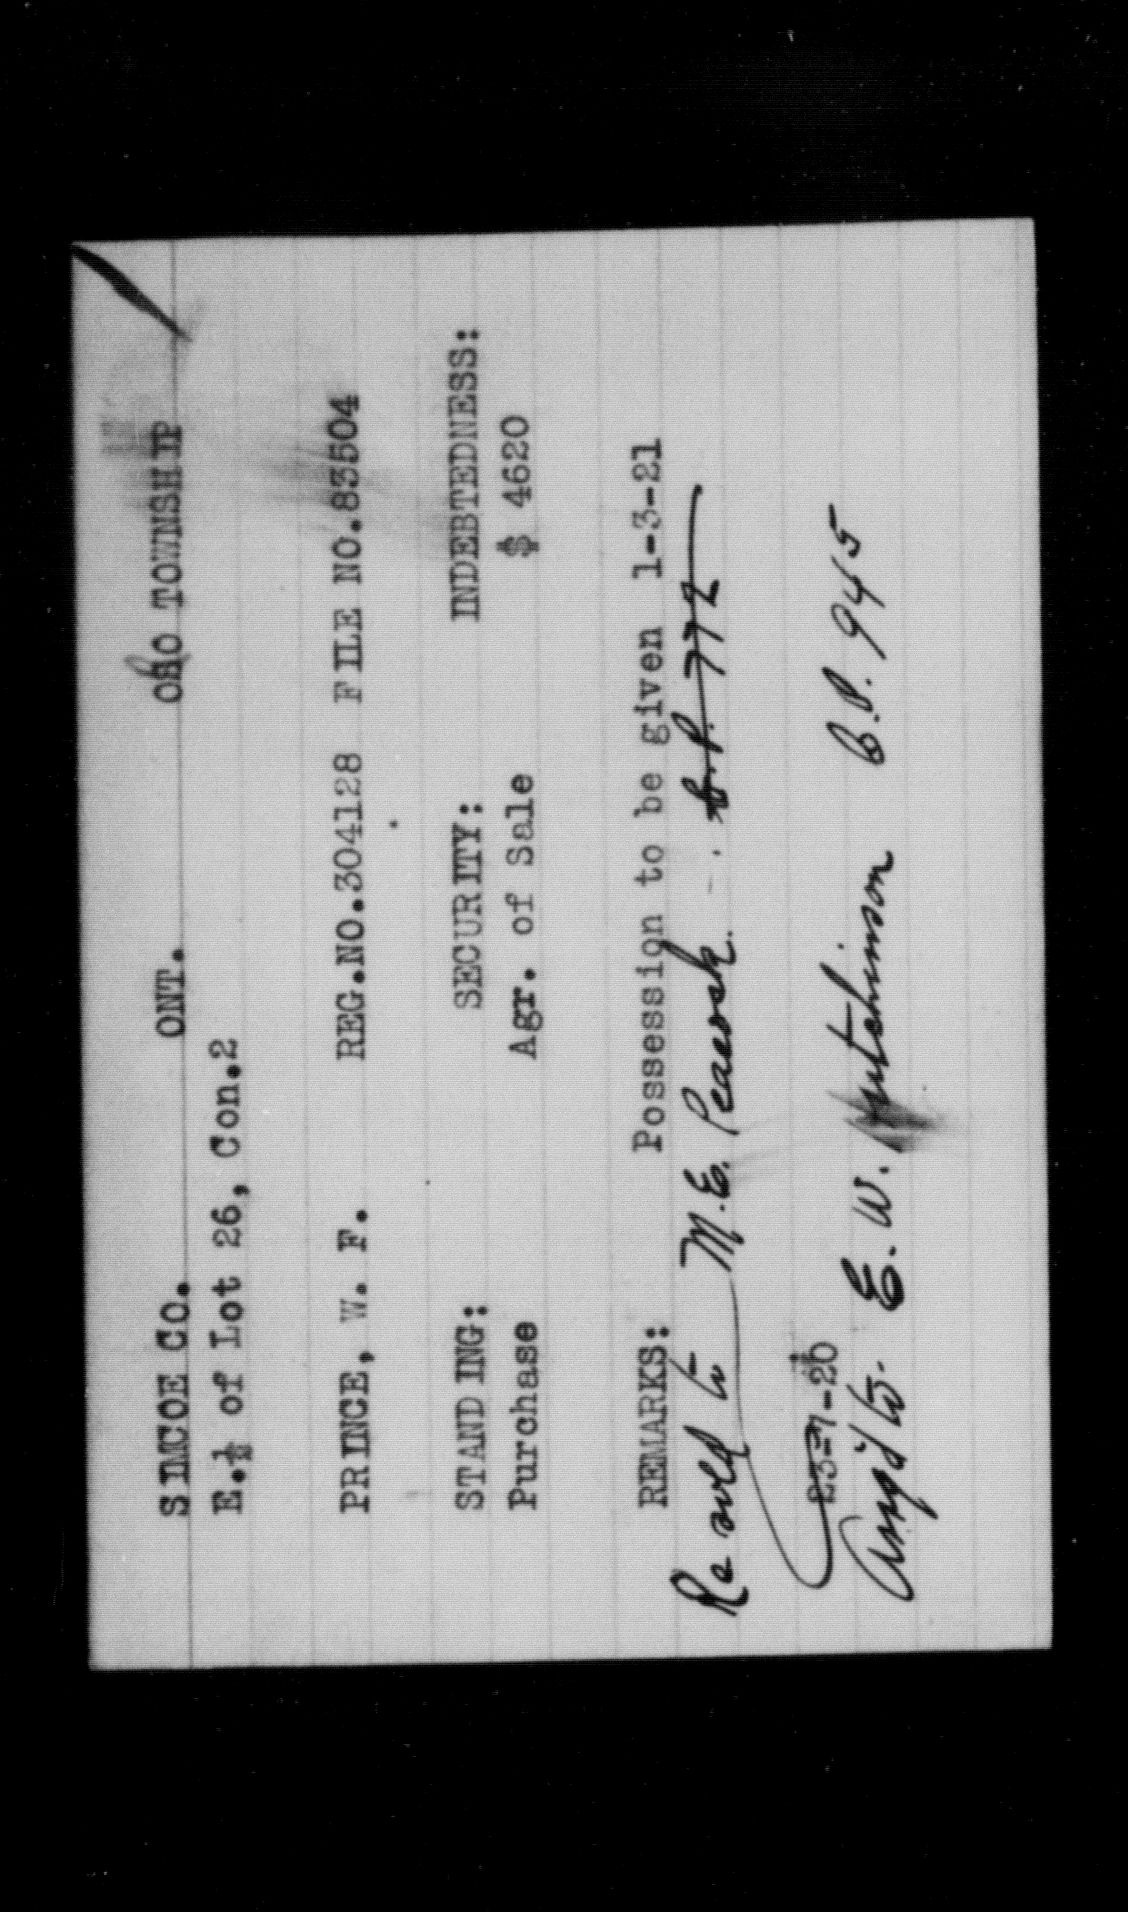 SIMCOE CO. ONT. ORO TOWNSHIP
E.½ of Lot 26, Con.2
PRINCE, W. F. REG.NO.304128 FILE NO.83504
STANDING: SECURITY: INDEBTEDNESS:
Purchase Agr. of Sale $ 4620
REMARKS: Possession to be given 1-3-21
Re sold to M.E. Peacock. C.P. 772
23-7-20
Ass'd to. E. W. Hutchinson C.P. 945